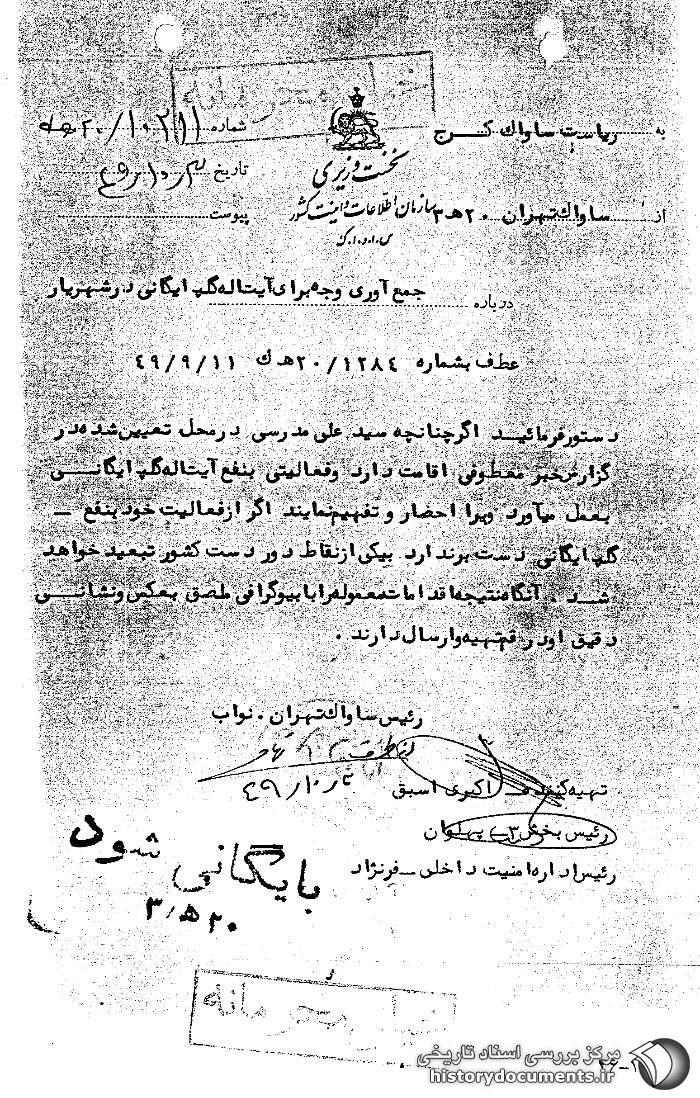 خیلی محرمانه
به ریاست ساواک کرج
شماره ۱۰۲۱۱/۲۰ ه‍
نخست وزیری
تاریخ
سازمان اطلاعات و امنیت کشور
س.ا.و.ا.ک
از ساواک تهران ۲۰ ه‍ ۳
پیوست
درباره جمع آوری وجه برای آیت اله گلپایگانی در شهریار
عطف بشماره ۱۲۸۴/۲۰ ه‍ ک ۴۹/۹/۱۱
دستور فرمائید اگر چنانچه سید علی مدرسی در محل تعیین شده در
گزارش خبر معطوفی اقامت دارد و فعالیتی بنفع آیت اله گلپایگانی
بعمل میآورد ویرا احضار و تفهیم نمایند اگر از فعالیت خود بنفع –
گلپایگانی دست برندارد بیکی از نقاط دور دست کشور تبعید خواهد
شد . آنگاه نتیجه اقدامات معموله را با بیوگرافی ملصق بعکس و نشانی
دقیق او در قم تهیه و ارسال دارند .
رئیس ساواک تهران . نواب
تهیه کننده – اکبری اسبق
رئیس بخش ۳ – پهلوان
رئیس اداره امنیت داخلی – فرنژاد
بایگانی شود
۲۰ ه‍ ۳
خیلی محرمانه
مرکز بررسی اسناد تاریخی
historydocuments.ir